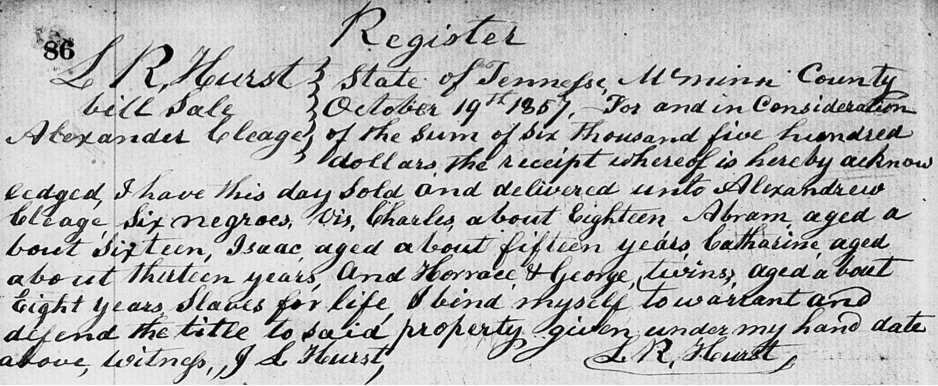 Register
86
L R, Hurst } State of Tennesse, Mcminn County
bill Sale } October 19th 1857, For and in Consideration
Alexander Cleage } of the sum of Six thousand five hundred
dollars, the receipt whereof is hereby acknow
ledged, I have this day Sold and delivered unto Alexandrew
Cleage, Six negroes, vis, Charles, about Eighteen, Abram, aged a
bout Sixteen, Isaac, aged about fifteen years, Catharine, aged
about thirteen years, And Horrace & George, twins, aged about
Eight years, Slaves for life, I bind myself to warrant and
defend the title to said property given under my hand date
above, witness, J L Hurst, L R, Hurst,